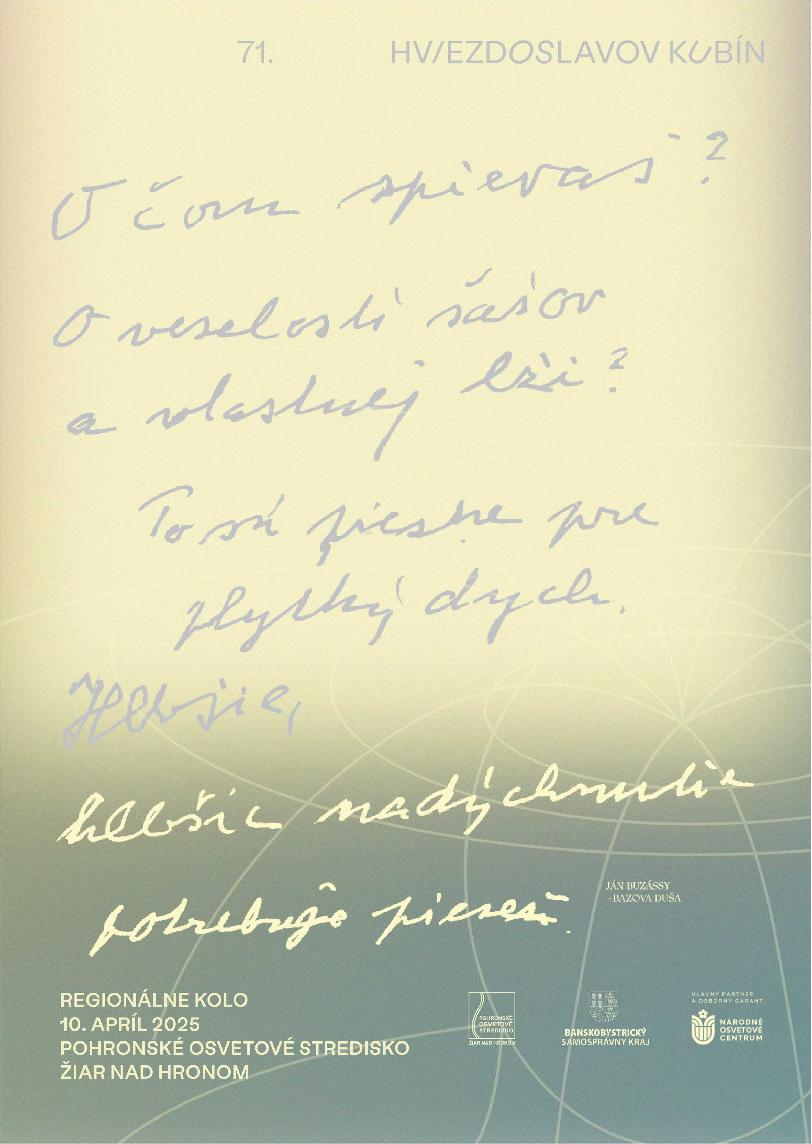 71. HVIEZDOSLAVOV KUBÍN
O čom spievaš?
O veselosti šašov
a vlastnej lži?
To sú piesne pre
plytký dych.
Hlbšie,
hlbšie nadýchnutie
potrebuje pieseň.
JÁN BUZÁSSY
–BAZOVA DUŠA
REGIONÁLNE KOLO
10. APRÍL 2025
POHRONSKÉ OSVETOVÉ STREDISKO
ŽIAR NAD HRONOM
POHRONSKÉ
OSVETOVÉ
STREDISKO
ŽIAR NAD HRONOM
BANSKOBYSTRICKÝ
SAMOSPRÁVNY KRAJ
HLAVNÝ PARTNER
A ODBORNÝ GARANT
NÁRODNÉ
OSVETOVÉ
CENTRUM